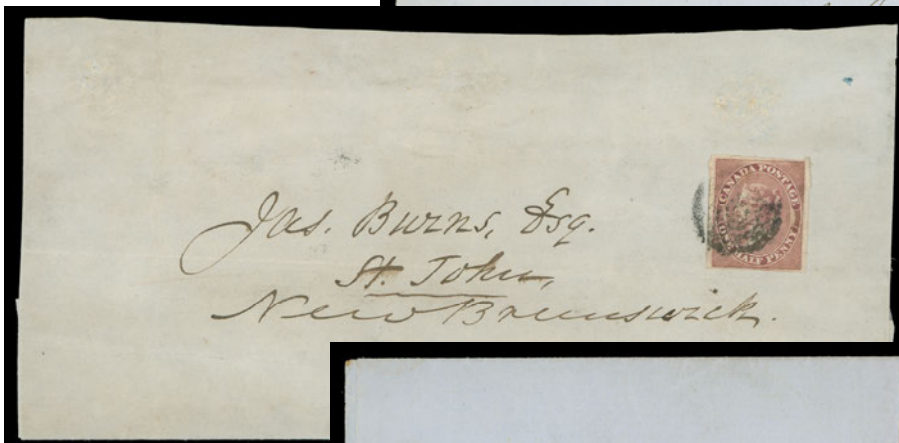 Jas. Burns, Esq.
St. John,
New Brunswick.
CANADA POSTAGE
ONE HALF PENNY